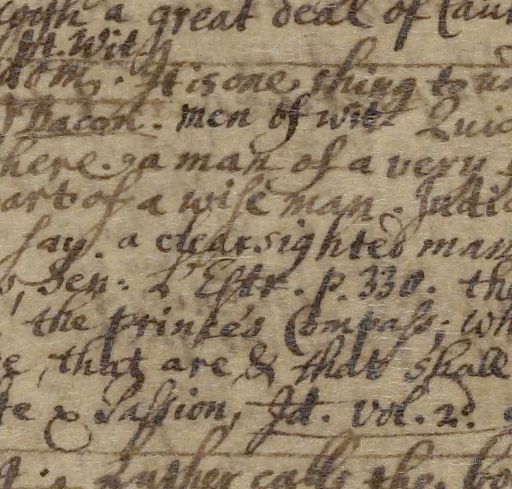 with a great deal of
pt. Wit
dom. It is one thing to
Bacon. men of wit Quic
here. a man of a very
art of a wise man. Judic
say. a clearsighted man
Sen. L'Estr. p. 330. the
the prince's Compass; wh
that are & that shall
Passion, Id. vol. 2.
Luther calls the bo